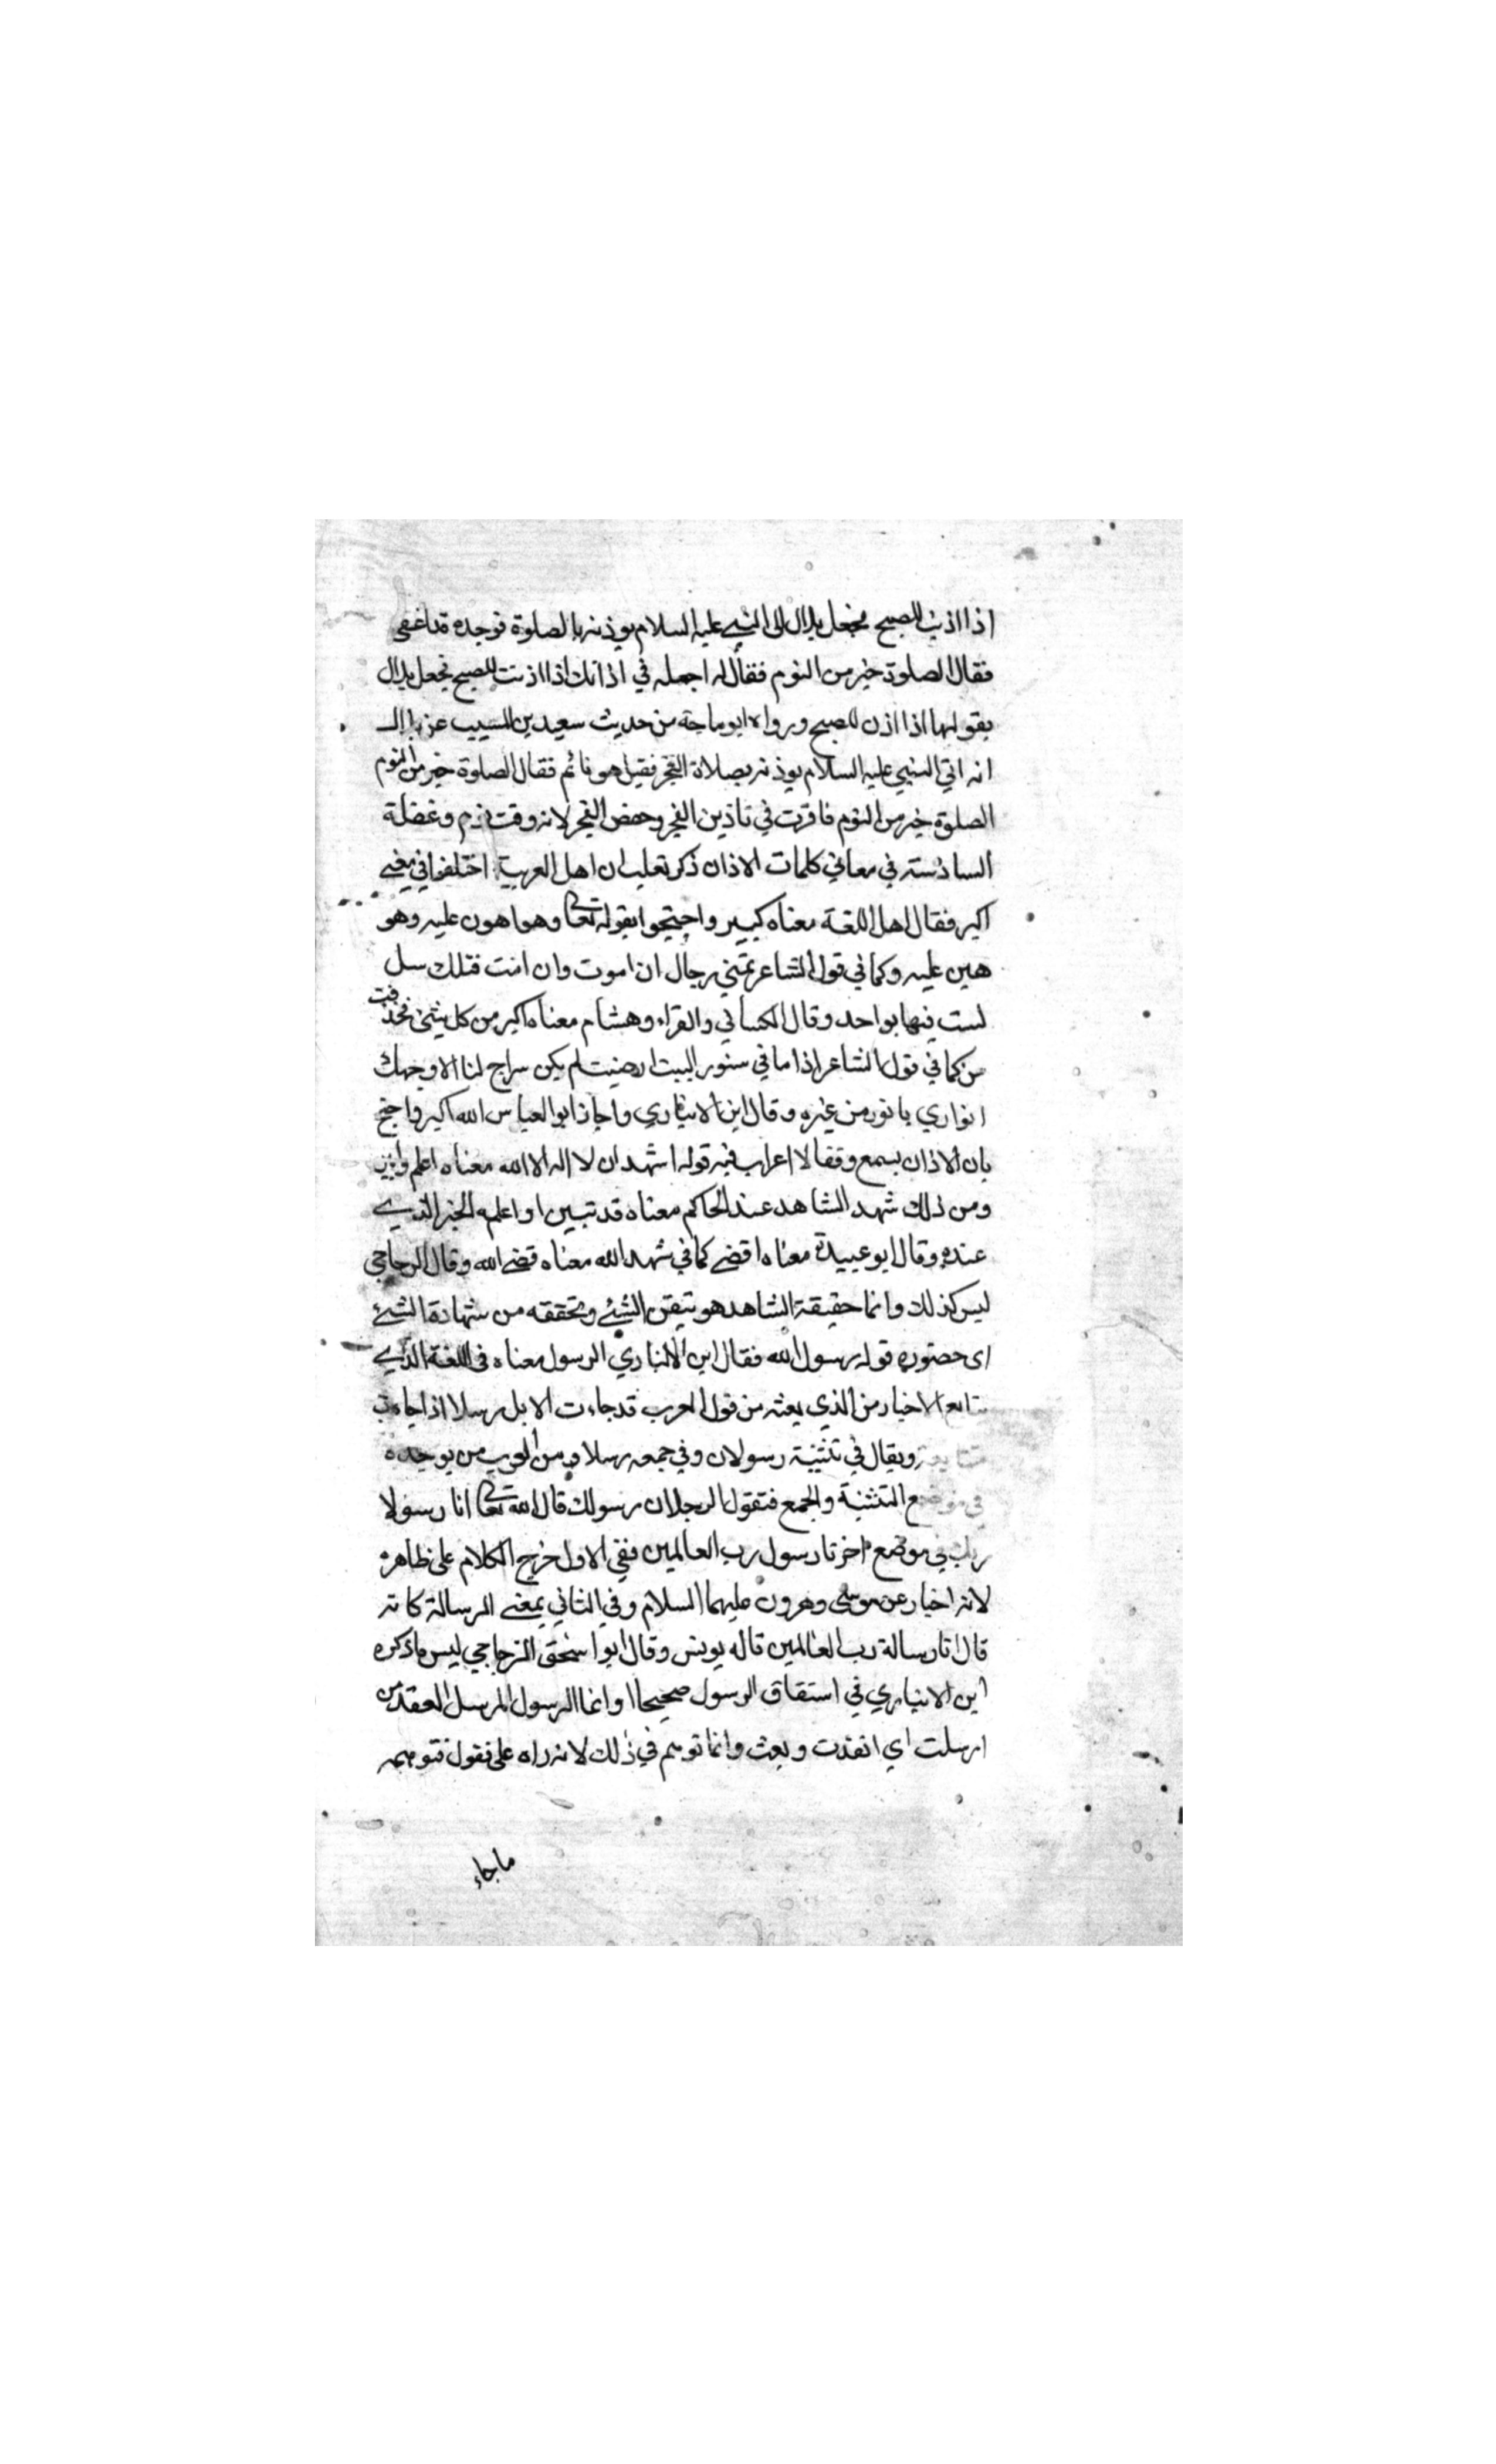 اذا اذنت للصبح فجعل بلال الى النبي عليه السلام يوذنه بالصلوة فوجده قد اغفى
فقال الصلوة خير من النوم فقال له اجعله في اذانك اذا اذنت للصبح فجعل بلال
يقولها اذا اذن للصبح ورواه ابو ماجة من حديث سعيد بن المسيب عن بلال
انه اتي النبي عليه السلام يوذنه بصلاة الفجر فقيل هو نائم فقال الصلوة خير من النوم
الصلوة خير من النوم فاقرت في تاذين الفجر وخص الفجر لانه وقت نوم وغفلة
السادسة في معاني كلمات الاذان ذكر ثعلب ان اهل العربية اختلفوا في معنى
اكبر فقال اهل اللغة معناه كبير واحتجوا بقوله تعا وهو اهون عليه وهو
هين عليه وكما في قول الشاعر تمنى رجال ان اموت وان امت فتلك سبيل
لست فيها بواحد وقال الكسائي والفراء وهشام معناه اكبر من كل شئ فحذفت
من كما في قول الشاعر اذا ما في ستور البيت ارخيت لم يكن سراج لنا الا وجهك
انواري يا نور من غيره وقال ابن الانباري واجاز ابو العباس الله اكبر واحتج
بان الاذان يسمع وقفا لا اعراب فيه قوله اشهد ان لا اله الا الله معناه اعلم وابين
ومن ذلك شهد الشاهد عند الحاكم معناه قد تبين او اعلمه الخبر الذي
عنده وقال ابو عبيدة معناه اقضى كما في شهد الله معناه قضى الله وقال الزجاجي
ليس كذلك وانما حقيقة الشاهد هو تيقن الشئ وتحققه من شهادة الشئ
اى حضوره قوله رسول الله فقال ابن الانباري الرسول معناه في اللغة الذي
تتابع الاخبار من الذي بعثه من قول العرب قد جاءت الابل رسلا اذا جاءت
متتابعة ويقال في تثنية رسولان وفي جمعه رسلا ومن العرب من يوحده
في موضع التثنية والجمع فتقول الرجلان رسولك قال الله تعا انا رسولا
ربك في موضع اخر نا رسول رب العالمين ففي الاول خرج الكلام على ظاهره
لانه اخبار عن موسى وهرون عليهما السلام وفي الثاني بمعنى الرسالة كانه
قال انا رسالة رب العالمين قاله يونس وقال ابو اسحق الزجاجي ليس ما ذكره
ابن الانباري في اشتقاق الرسول صحيحا وانما الرسول المرسل من
ارسلت اي انفذت وبعث وانما توهم في ذلك لانه راه على فعول فتوهمه
ما جاء